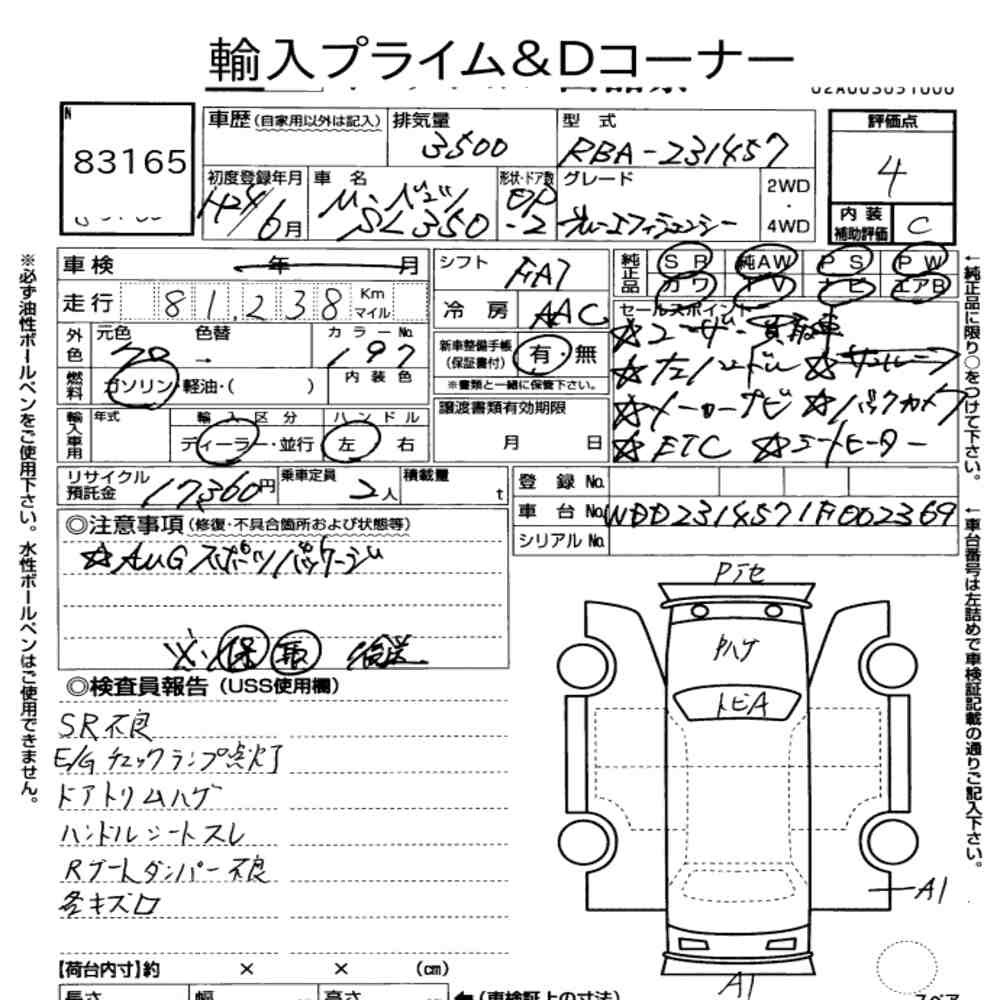 輸入プライム&Dコーナー
83165
車歴(自家用以外は記入)
排気量
3500
型 式
RBA-231457
評価点
4
内装
補助評価
C
初度登録年月
H24/6月
車 名
M・ベンツ
SL350
形状・ドア数
OP
-2
グレード
ブルーエフィシェンシー
2WD
・
4WD
車検
年 月
走行
81,238
Km
マイル
外色
元色
色替
カラーNo.
197
燃料
ガソリン・軽油・( )
内装色
輸入車用
年式
輸入区分
ディーラー・並行
ハンドル
左 右
シフト
FA7
冷房
AAC
新車整備手帳
(保証書付)
有・無
※書類と一緒に保管下さい。
譲渡書類有効期限
月 日
純正品
SR
純AW
PS
PW
カワ
TV
ナビ
エアB
セールスポイント
☆ユーザー買取車
☆左ハンドル ☆サンルーフ
☆メーカーナビ ☆バックカメラ
☆ETC ☆シートヒーター
リサイクル
預託金
17,360円
乗車定員
2人
積載量
t
登録No.
車台No.
WDD2314571F002369
シリアルNo.
◎注意事項(修復・不具合箇所および状態等)
☆AMGスポーツパッケージ
※保 取 後送
◎検査員報告(USS使用欄)
SR不良
E/Gチェックランプ点灯
ドアトリムハゲ
ハンドルシートスレ
Rゲートダンパー不良
各キズロ
【荷台内寸】約 × × (cm)
長さ
幅
高さ
(車検証上の寸法)
Pアセ
Pハゲ
トビA
A1
A1
スペア
※必ず油性ボールペンをご使用下さい。水性ボールペンはご使用できません。
←純正品に限り○をつけて下さい。
←車台番号は左詰めで車検証記載の通りご記入下さい。